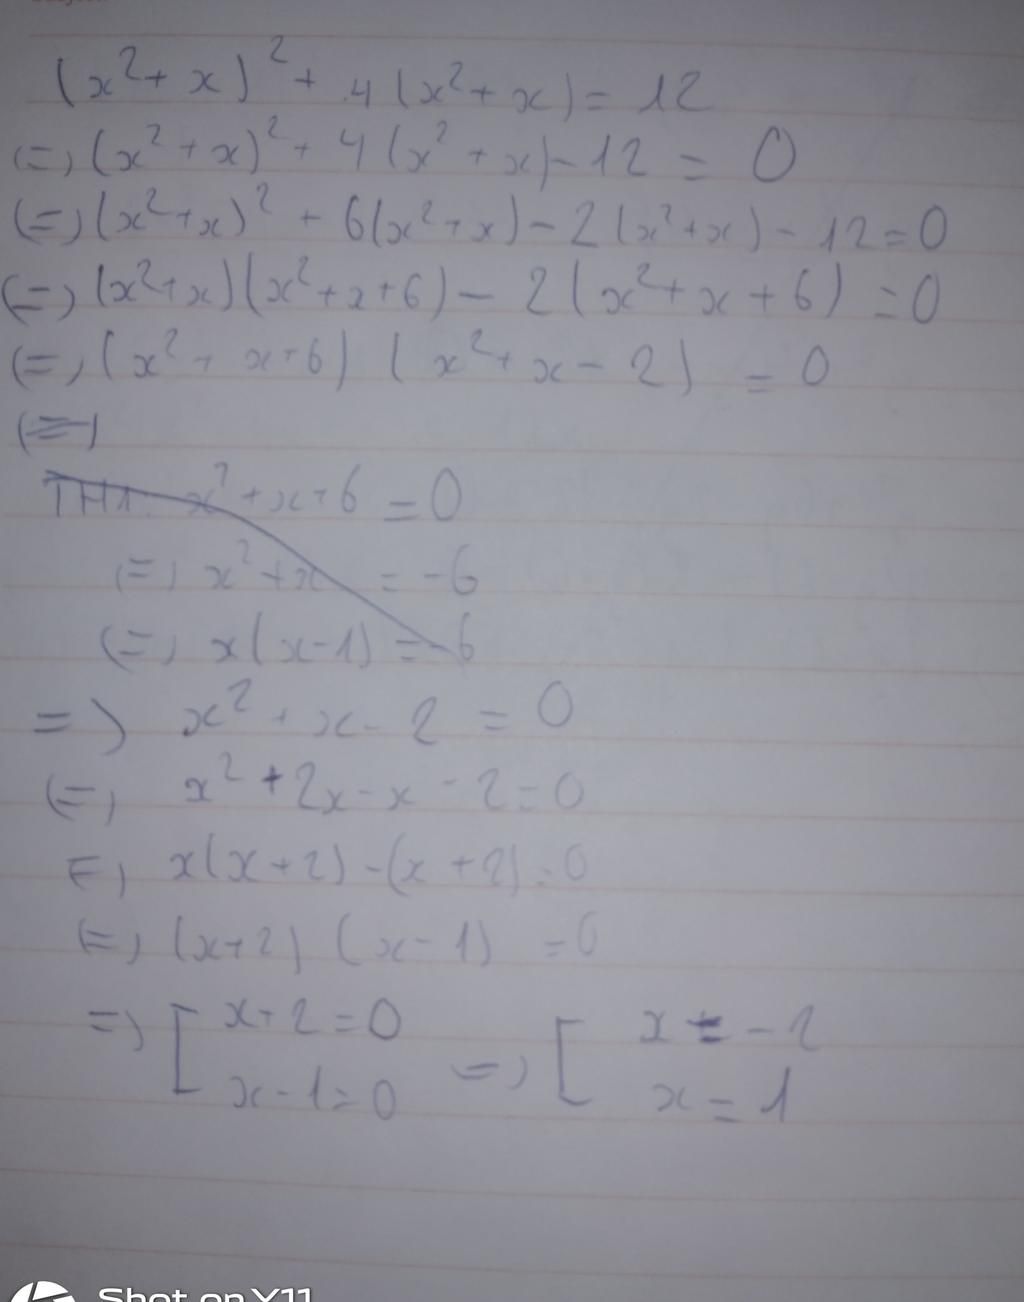 (x²+x)² + 4(x²+x) = 12
(=) (x²+x)² + 4(x²+x) - 12 = 0
(=) (x²+x)² + 6(x²+x) - 2(x²+x) - 12 = 0
(=) (x²+x)(x²+x+6) - 2(x²+x+6) = 0
(=) (x²+x+6)(x²+x-2) = 0
(=)
TH1: x²+x+6 = 0
(=) x²+x = -6
(=) x(x-1) = -6
=) x²+x-2 = 0
(=) x²+2x-x-2=0
(=) x(x+2)-(x+2)=0
(=) (x+2)(x-1) = 0
=) [ x+2=0 =) [ x=-2
x-1=0 x=1
Shot on Y11